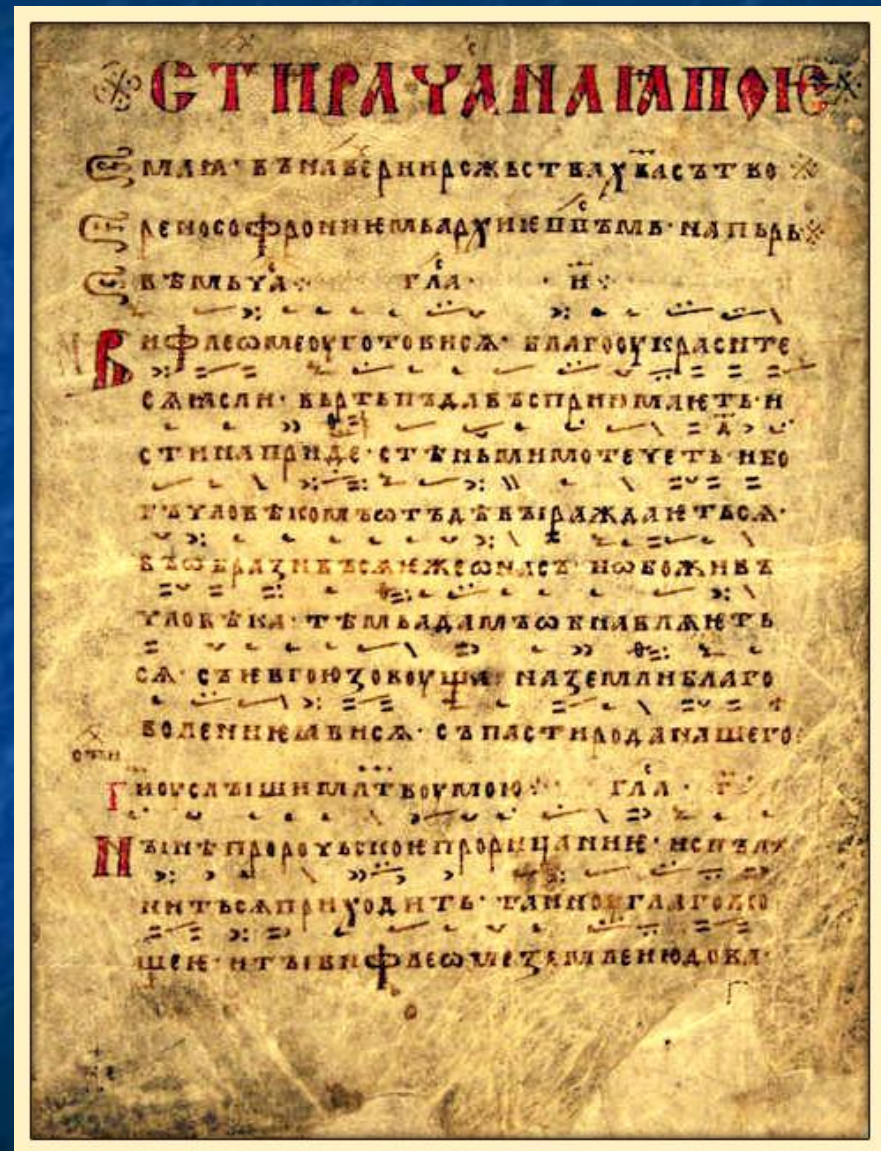 СТИРАЧАНАꙖПОѤ
МАꙖ· ВЪНАВЕРНИРОЖЬСТВАХВАСЪТВО
РЕНОСОФРОНИѤМЬАРХИѤППЪМЬ· НАПЬРЬ
ВѢМЬЧА· ГЛА· И·
ВИФЛЕѠМЕОУГОТОВИСѦ· БЛАГООУКРАСИТЕ
СѦꙖСЛИ· ВЬРТЬПЪДАВЪСПРИИМАѤТЬ· И
СТИНАПРИДЕ· СТѢНЬМИМОТЕЧЕТЬ· ИБО
ГЪЧЛОВѢКОМЪѠТЪДѢВЫРАЖДАѤТЬСѦ·
ВЪѠБРАЗИВЪСѦѤЖЕѠНАСЪ· ИѠБОЖИВЪ
ЧЛОВѢКА· ТѢМЬАДАМЪѠБНАВЛѦѤТЬ
СѦ· СЪѤВГОЮЗОВОУЩА· НАЗЕМЛИБЛАГО
ВОЛЕНИѤꙖВИСѦ· СЪПАСТИРОДАНАШЕГО·
ГИОУСЛЫШИМЛТВОУМОЮ· ГЛА· Г·
НЫНѢПРОРОЧЬСКОѤПРОРИЦАНИѤ· ИСПЪЛ
НИТЬСѦПРИХОДИТЬ· ТАИНОѤГЛАГОЛЮ
ЩЕѤ· ИТЫВИФЛЕѠМЕЗЕМЛЕИЮДОВА·